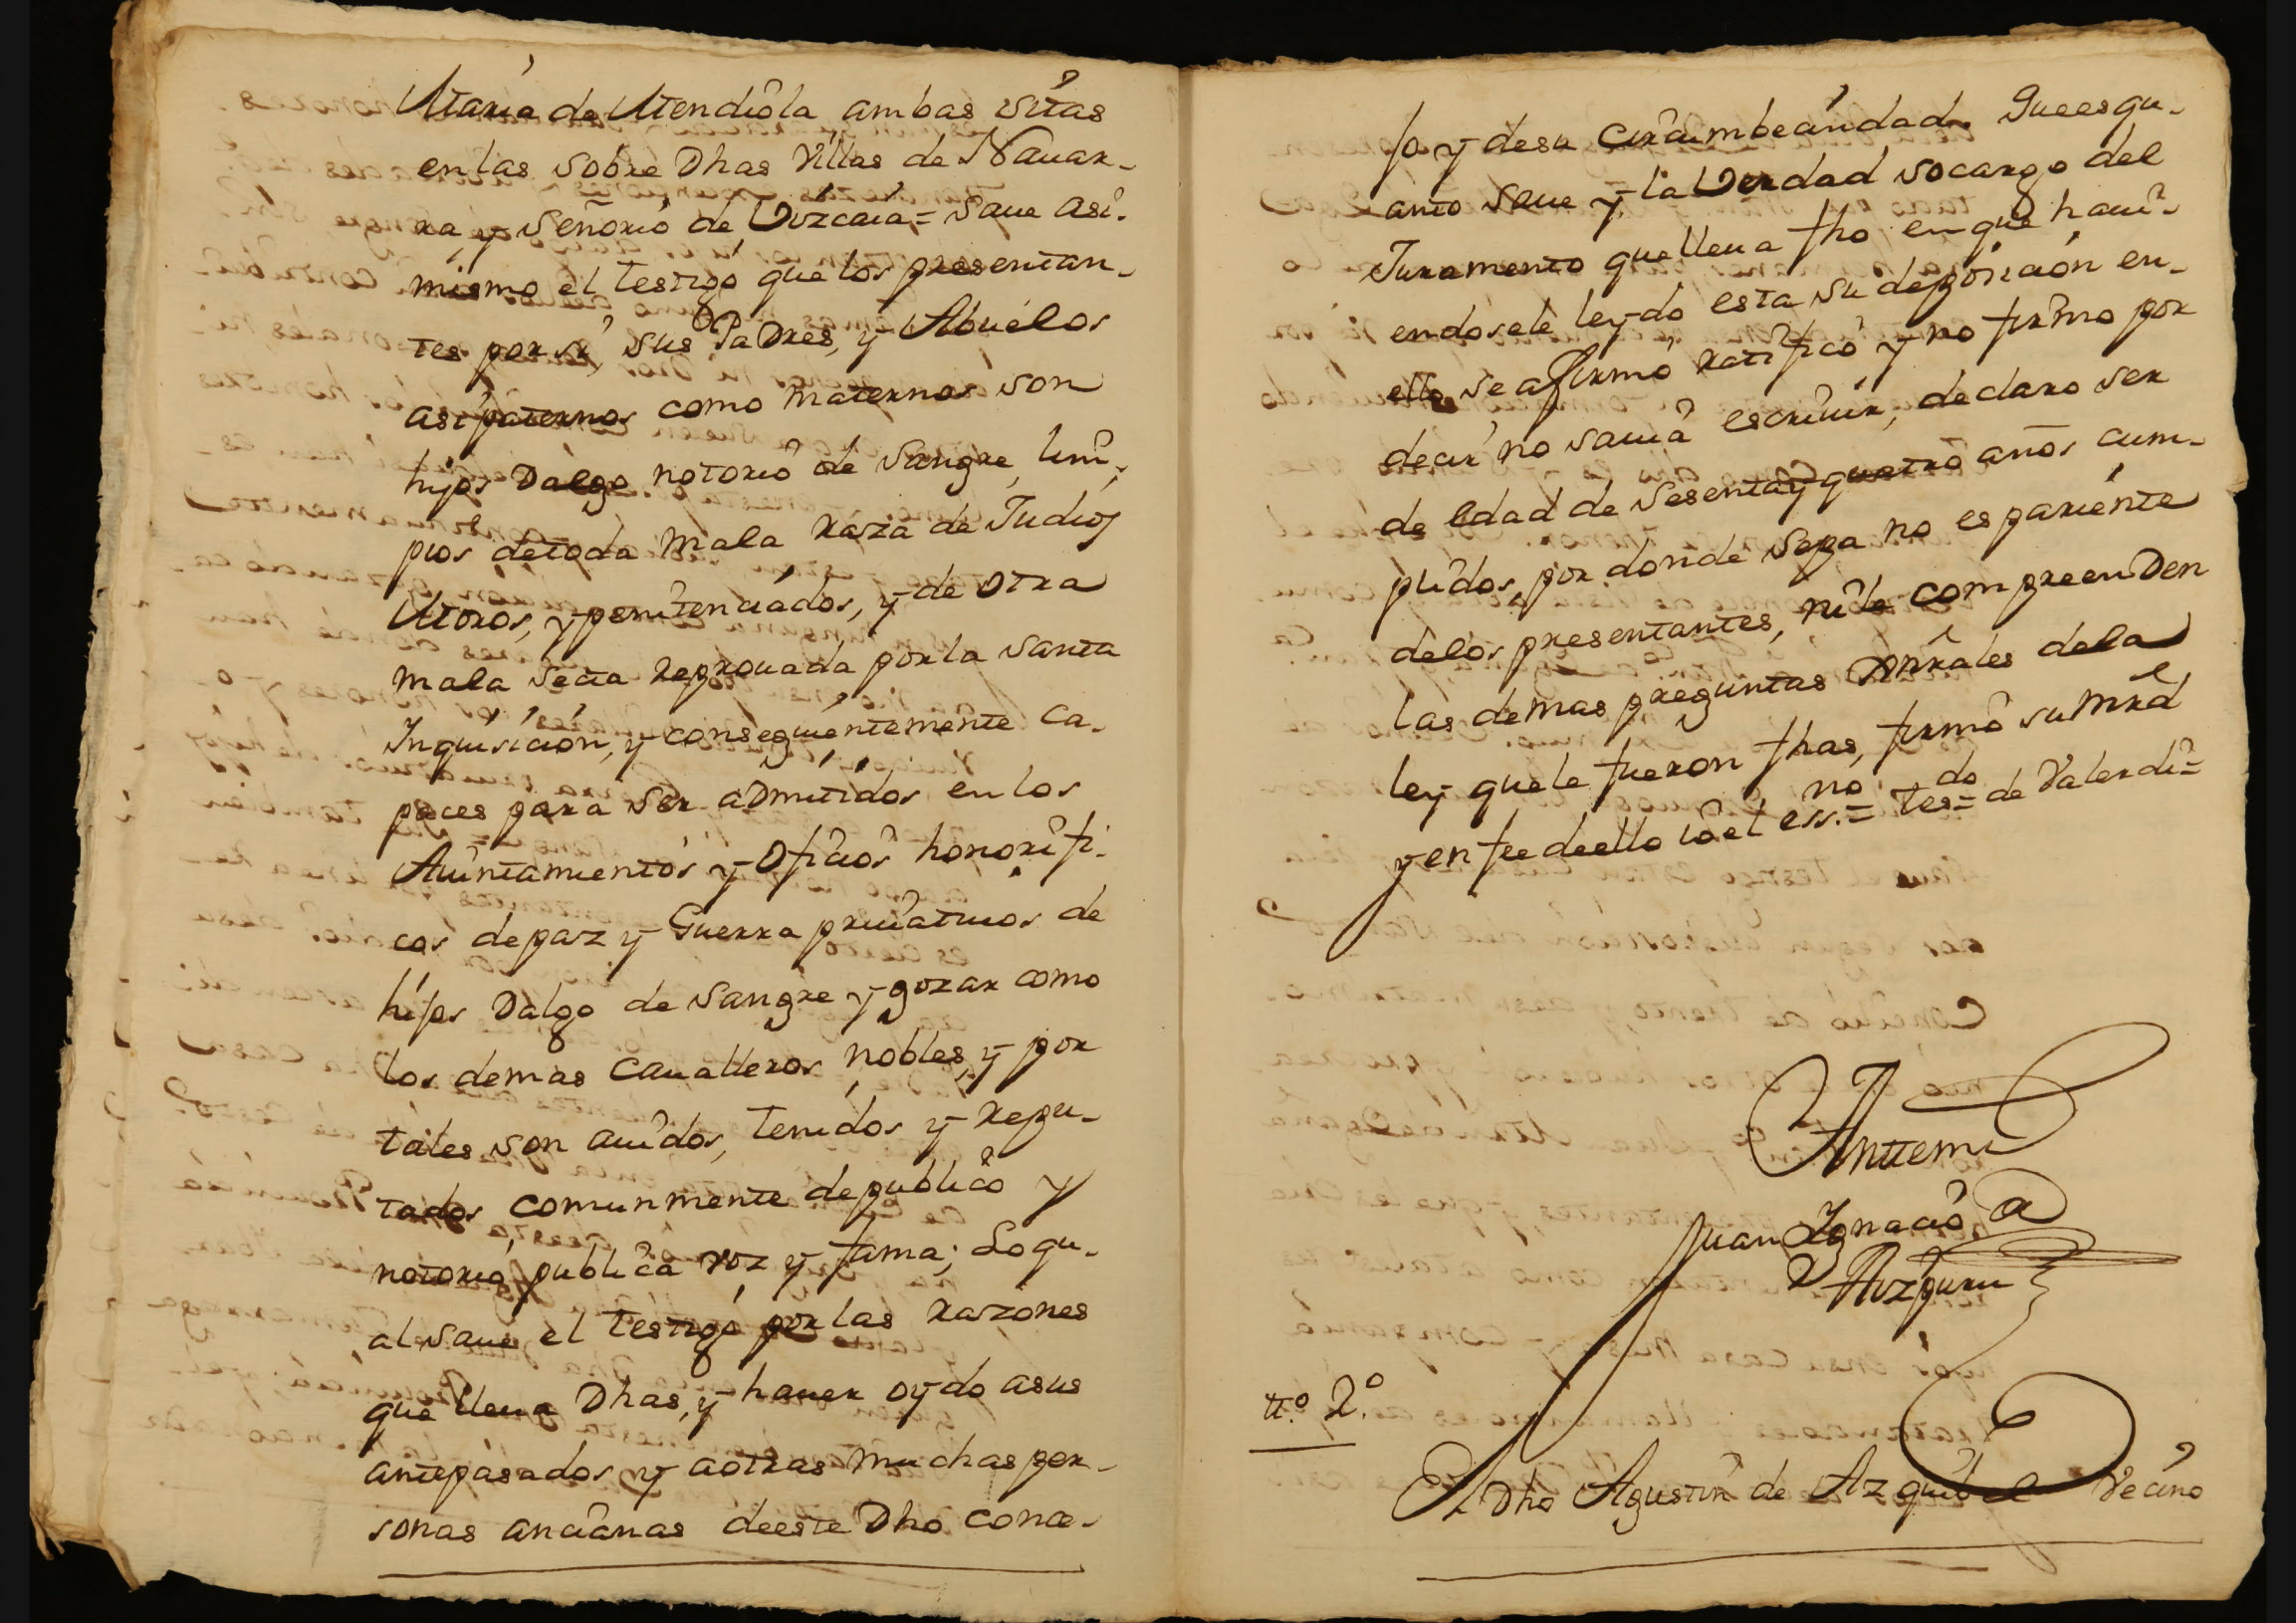 Maria de Mendiola ambas sitas
en las sobre Dhas Villas de Nauar-
ra, y Señorio de Vizcaia = Saue asi-
mismo el testigo que los presentan-
tes por si, sus Padres, y Abuelos
asi paternos como maternos son
hijos Dalgo notorio de Sangre, lim-
pios de toda mala raza de Judios
Moros, y penitenciados, y de otra
mala secta reprouada por la santa
Inquisicion, y consequentemente ca-
paces para ser aDmitidos en los
Aiuntamientos y Oficios honorifi-
cos de paz y Guerra priuatiuos de
hijos Dalgo de Sangre y gozar como
los demas Caualleros nobles, y por
tales son auidos, tenidos y repu-
tados comunmente de publico y
notorio, publica voz y fama; Lo qu-
al saue el testigo por las razones
que lleua Dhas, y hauer oydo a sus
antepasados y a otras muchas per-
sonas ancianas de este Dho conce-
jo y de su circumbeandad. Que es qu-
anto saue y la Verdad so cargo del
Juramento que lleua fho en que haui-
endosele leydo esta su deposicion en-
ello se afirmó ratificó y no firmo por
decir no sauia escriuir, declaro ser
de edad de sesenta y quatro años cum-
plidos, por donde sepa no es pariente
de los presentantes, ni le compreenDen
las demas preguntas Gnrales de la
ley que le fueron fhas, firmó su Mrd
y en fee de ello io el ess.no = tes=do de Valerdi =
Anttemi
Juan Ignacio
de Aizpuru
tt.o 2.o
El Dho Agustin de Azquibel Vecino